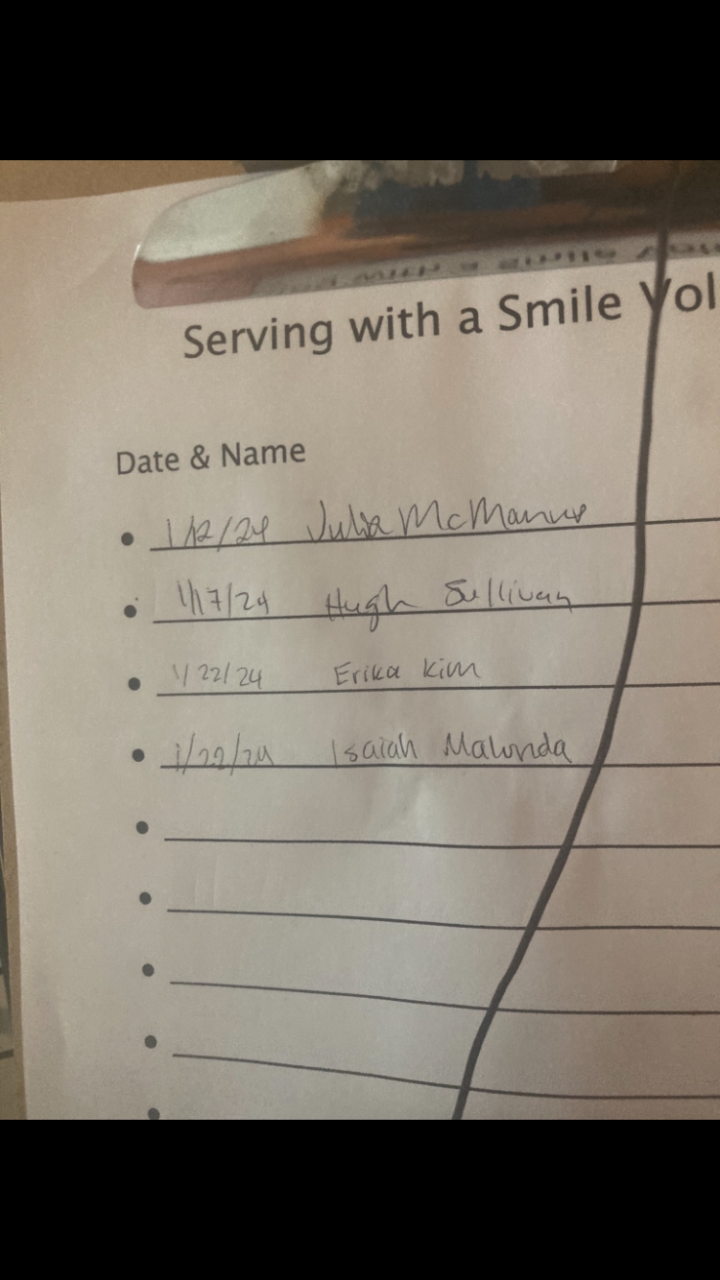 Serving with a Smile Vol
Date & Name
1/12/24 Julia McManus
1/17/24 Hugh Sullivan
1/22/24 Erika Kim
1/22/24 Isaiah Malunda